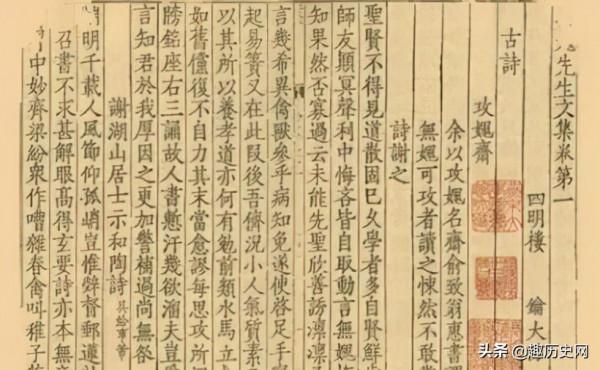 先生文集卷第一
四明樓 鑰 大
古詩
攻媿齋
余以攻媿名齋俞致翁惠書謂
無媿可攻者讀之悚然不敢
詩謝之
聖賢不得見道散固已久學者多自賢鮮
師友顛冥聲利中悔吝皆自取動言無媿
知果然否寡過云未能先聖欣善誘凛凛
言幾希異禽獸參乎病知免遂使啓足手
起易簀又在此叚後吾儕況小人氣質素
以其所以養孝道亦何有勉前類水馬立
如舊僅復不自力其末當愈謬每思攻所
牓銘座右三誦故人書慙汗幾欲溜夫豈
言知君於我厚因之更加警補過尚無咎
謝湖山居士示和陶詩
明千載人風節仰孤峭豈惟辭督郵
召書不求甚解眼高得玄要詩亦本無
中妙齊梁紛衆作嘈雜春禽叫稚子
头条 @趣历史网